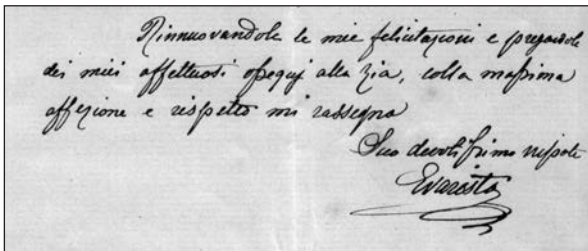 Rinnuovandole le mie felicitazioni e pregandole
dei miei affettuosi ossequj alla zia, colla massima
affezione e rispetto mi rassegno
Suo devotissimo nipote
Evaristo